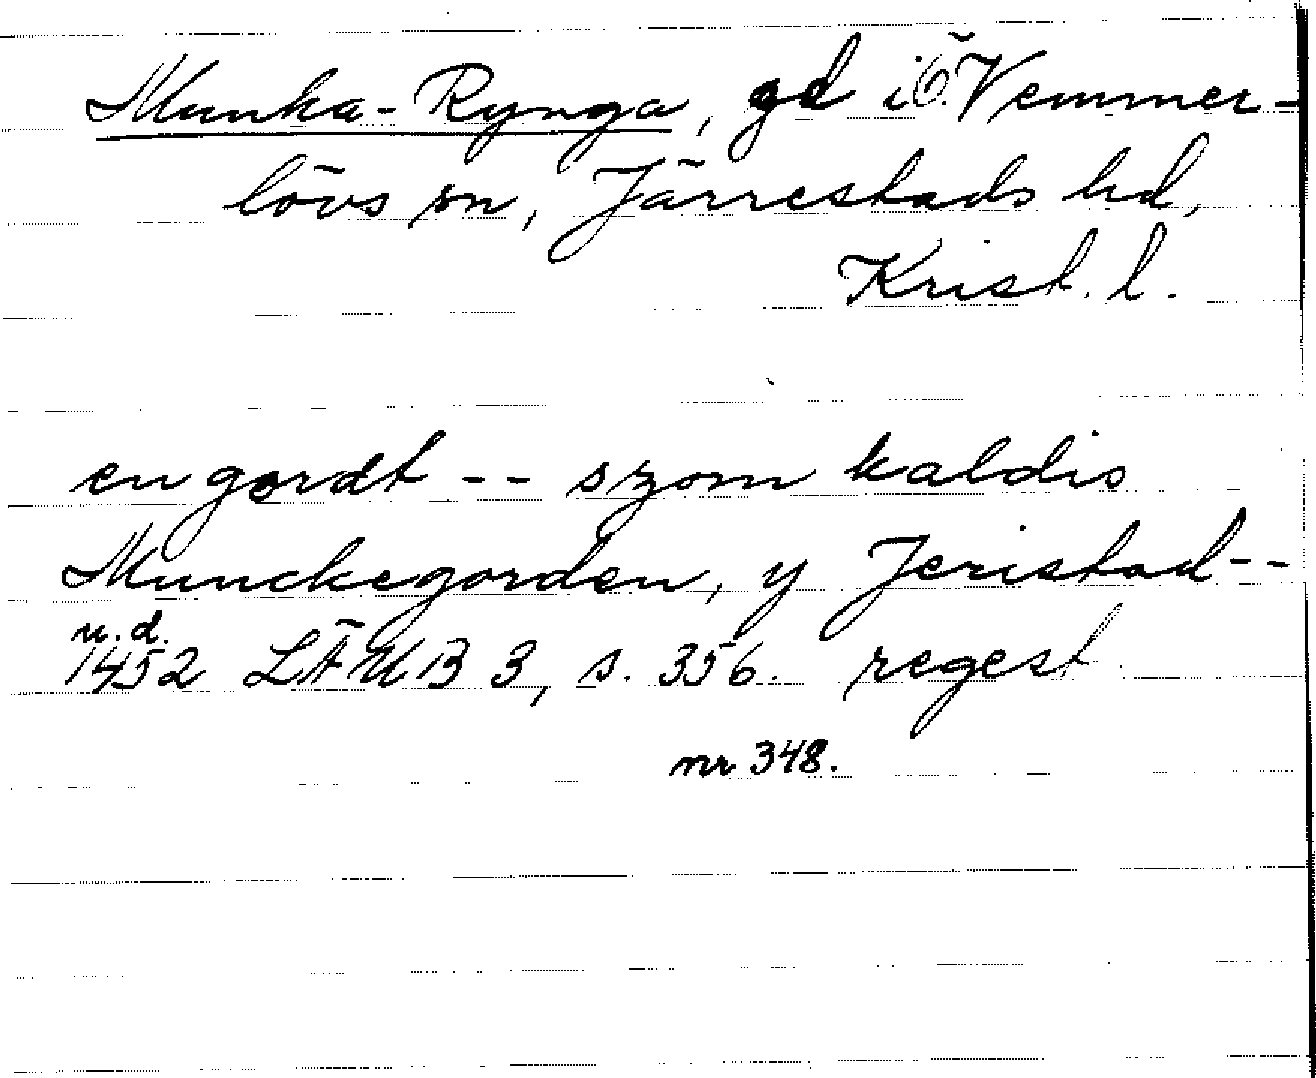 Munka-Rynga, gd i Ö. Vemmer-
lövs sn, Järrestads hd,
Krist. l.
en gordt -- szom kaldis
Munckegorden, y Jeristad--
u.d.
1452 LÄUB 3, s. 356. regest
nr 348.